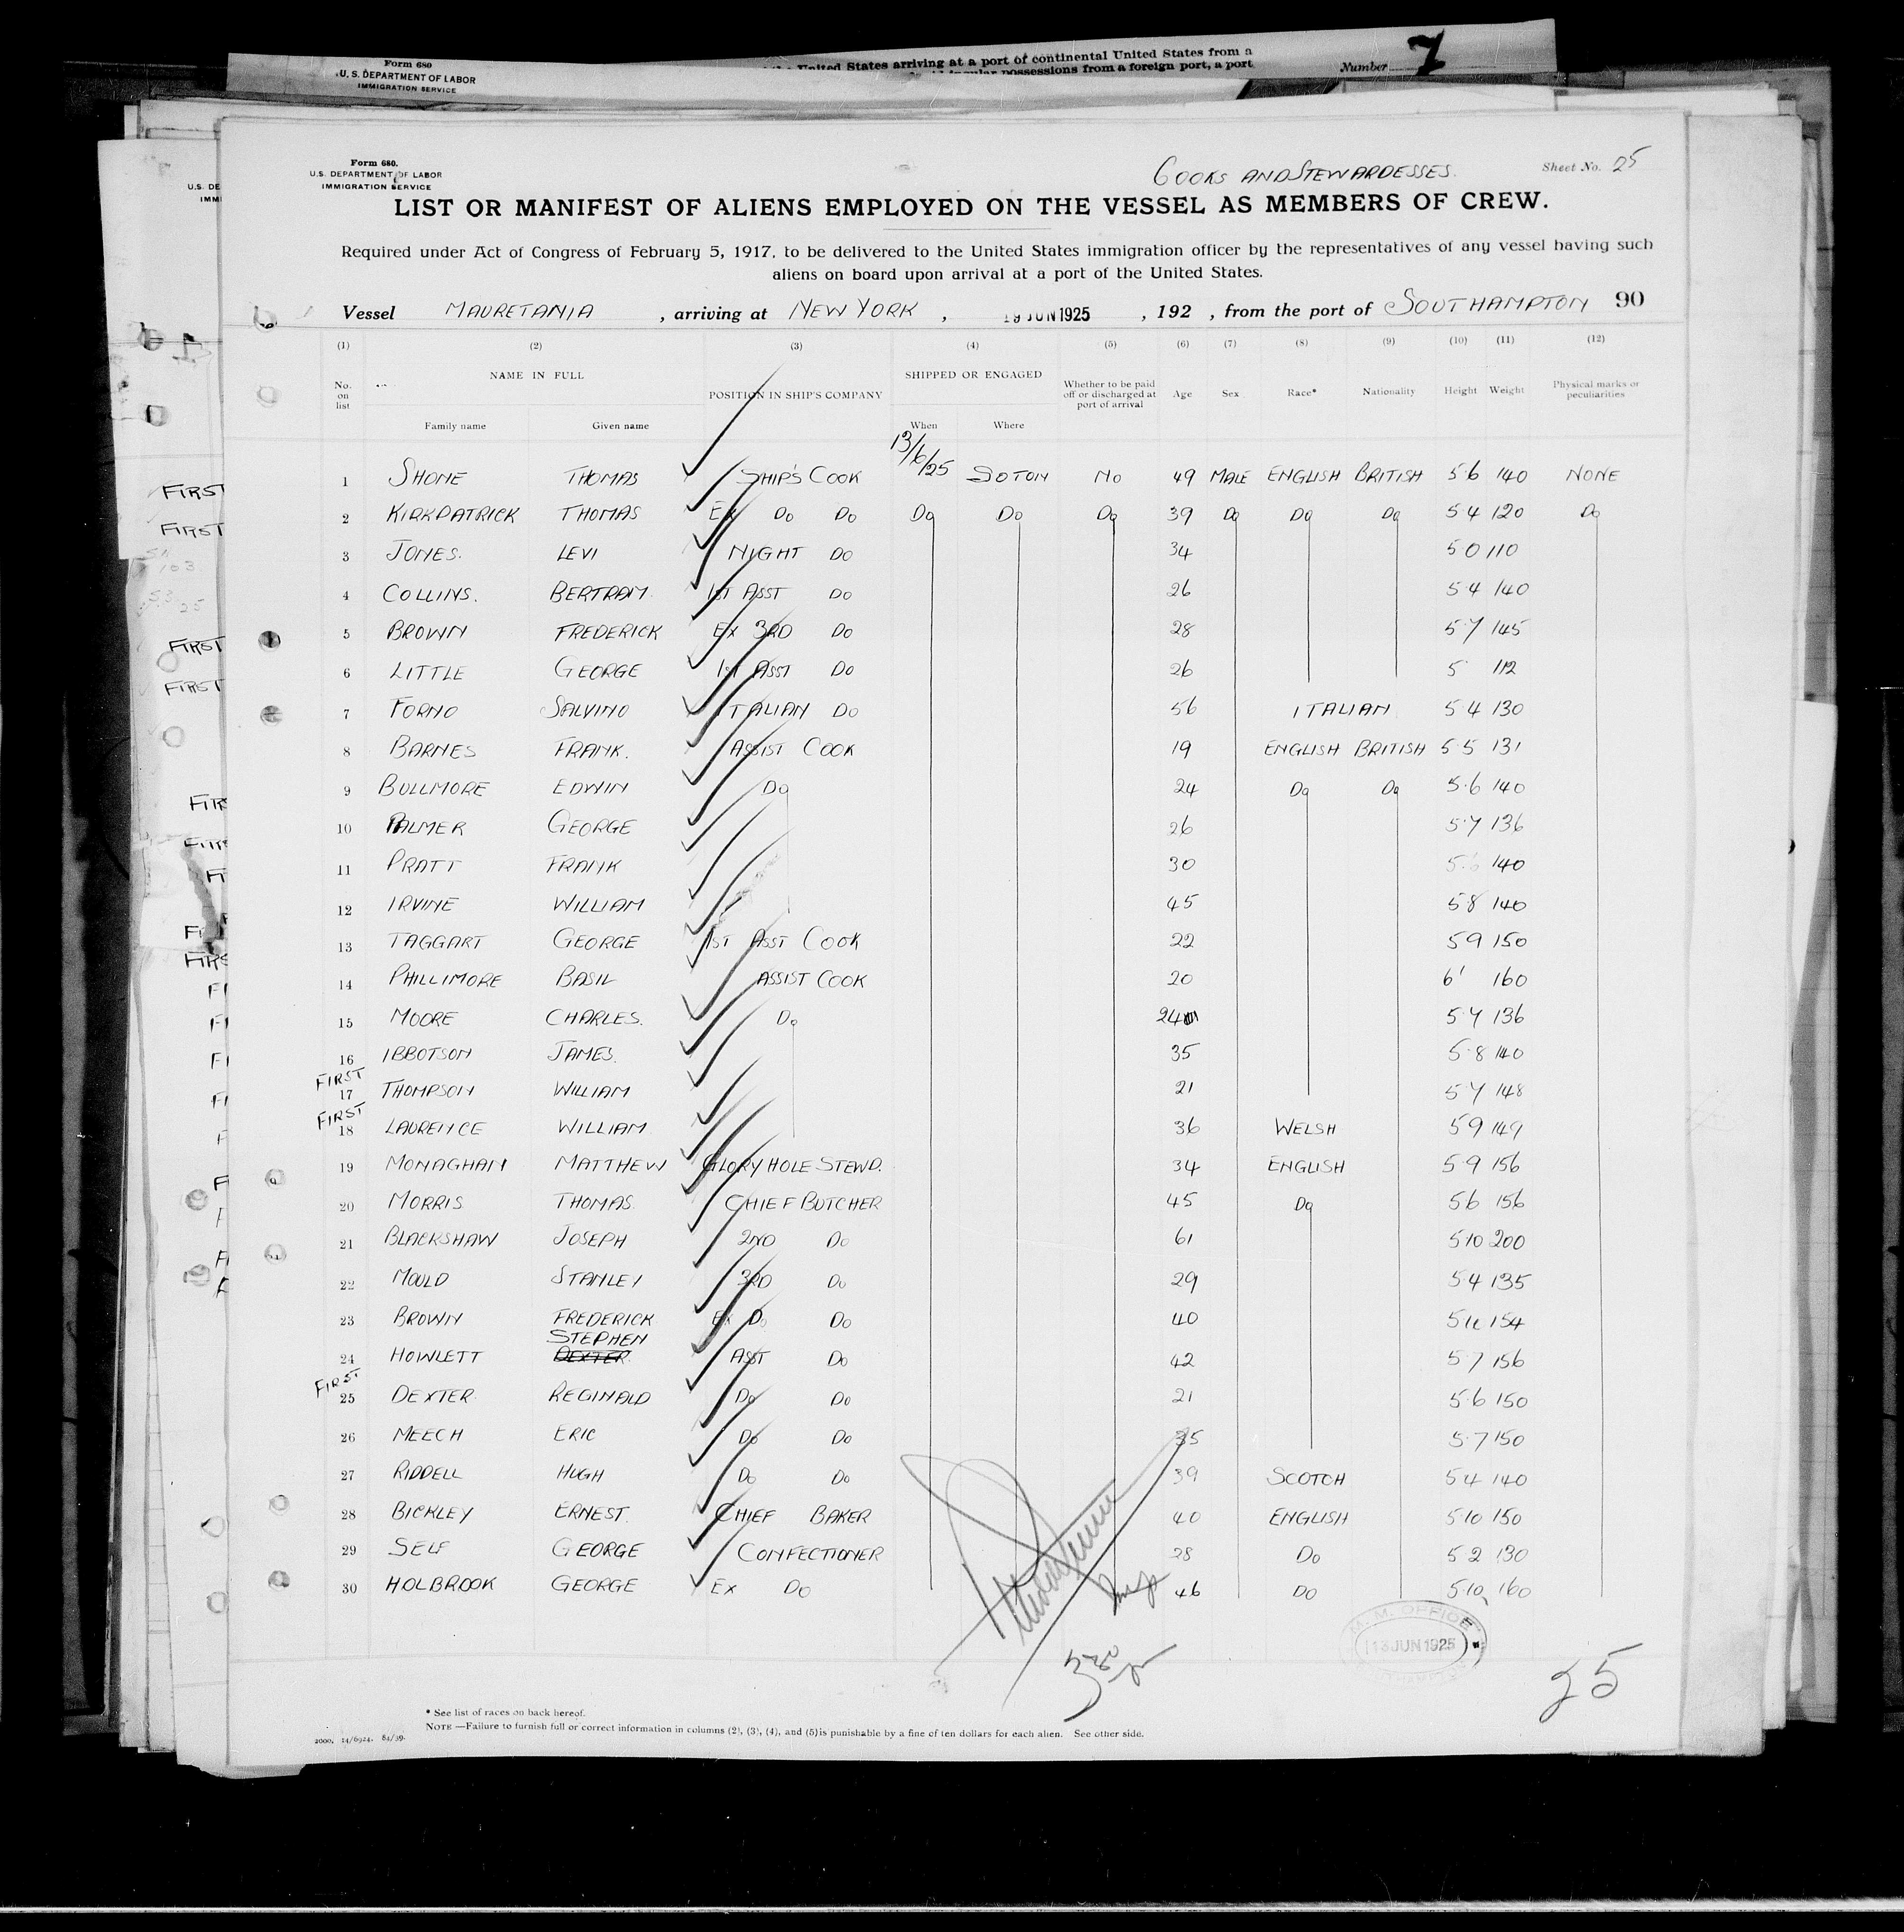 Form 680
U. S. DEPARTMENT OF LABOR
IMMIGRATION SERVICE
United States arriving at a port of continental United States from a
possessions from a foreign port, a port
Number 7
Form 680.
U.S. DEPARTMENT OF LABOR
IMMIGRATION SERVICE
COOKS AND STEWARDESSES.
Sheet No. 25
LIST OR MANIFEST OF ALIENS EMPLOYED ON THE VESSEL AS MEMBERS OF CREW.
Required under Act of Congress of February 5, 1917, to be delivered to the United States immigration officer by the representatives of any vessel having such
aliens on board upon arrival at a port of the United States.
Vessel MAURETANIA , arriving at NEW YORK , 19 JUN 1925 , 192 , from the port of SOUTHAMPTON 90
(1) (2) (3) (4) (5) (6) (7) (8) (9) (10) (11) (12)
No. on list NAME IN FULL POSITION IN SHIP'S COMPANY SHIPPED OR ENGAGED Whether to be paid off or discharged at port of arrival Age Sex Race* Nationality Height Weight Physical marks or peculiarities
Family name Given name When Where
1 SHONE THOMAS SHIP'S COOK 13/6/25 SOTON NO 49 MALE ENGLISH BRITISH 5 6 140 NONE
2 KIRKPATRICK THOMAS EX DO DO DO DO DO 39 DO DO DO 5 4 120 DO
3 JONES. LEVI NIGHT DO 34 5 0 110
4 COLLINS. BERTRAM 1ST ASST DO 26 5 4 140
5 BROWN FREDERICK EX 3RD DO 28 5.7 145
6 LITTLE GEORGE 1ST ASST DO 26 5 112
7 FORNO SALVINO ITALIAN DO 56 ITALIAN 5 4 130
8 BARNES FRANK. ASSIST COOK 19 ENGLISH BRITISH 5.5 131
9 BULLMORE EDWIN DO 24 DO DO 5.6 140
10 PALMER GEORGE 26 5.7 136
11 PRATT FRANK 30 5.6 140
12 IRVINE WILLIAM 45 5 8 140
13 TAGGART GEORGE 1ST ASST COOK 22 5 9 150
14 PHILLIMORE BASIL ASSIST COOK 20 6' 160
15 MOORE CHARLES. DO 24 5.7 136
16 IBBOTSON JAMES. 35 5.8 140
FIRST
17 THOMPSON WILLIAM 21 5 7 148
FIRST
18 LAURENCE WILLIAM 36 WELSH 5 9 149
19 MONAGHAN MATTHEW GLORY HOLE STEWD. 34 ENGLISH 5.9 156
20 MORRIS THOMAS CHIEF BUTCHER 45 DO 5 6 156
21 BLACKSHAW JOSEPH 2ND DO 61 5 10 200
22 MOULD STANLEY 3RD DO 29 5.4 135
23 BROWN FREDERICK EX DO DO 40 5 11 154
STEPHEN
24 HOWLETT DEXTER ASST DO 42 5.7 156
FIRST
25 DEXTER REGINALD DO DO 21 5.6 150
26 MEECH ERIC DO DO 35 5.7 150
27 RIDDELL HUGH DO DO 39 SCOTCH 5 4 140
28 BICKLEY ERNEST. CHIEF BAKER 40 ENGLISH 5 10 150
29 SELF GEORGE CONFECTIONER 28 DO 5 2 130
30 HOLBROOK GEORGE EX DO 46 DO 5.10 160
M. M. OFFICE
13 JUN 1925
25
* See list of races on back hereof.
NOTE —Failure to furnish full or correct information in columns (2), (3), (4), and (5) is punishable by a fine of ten dollars for each alien. See other side.
2000. 14/6924. 84/39.